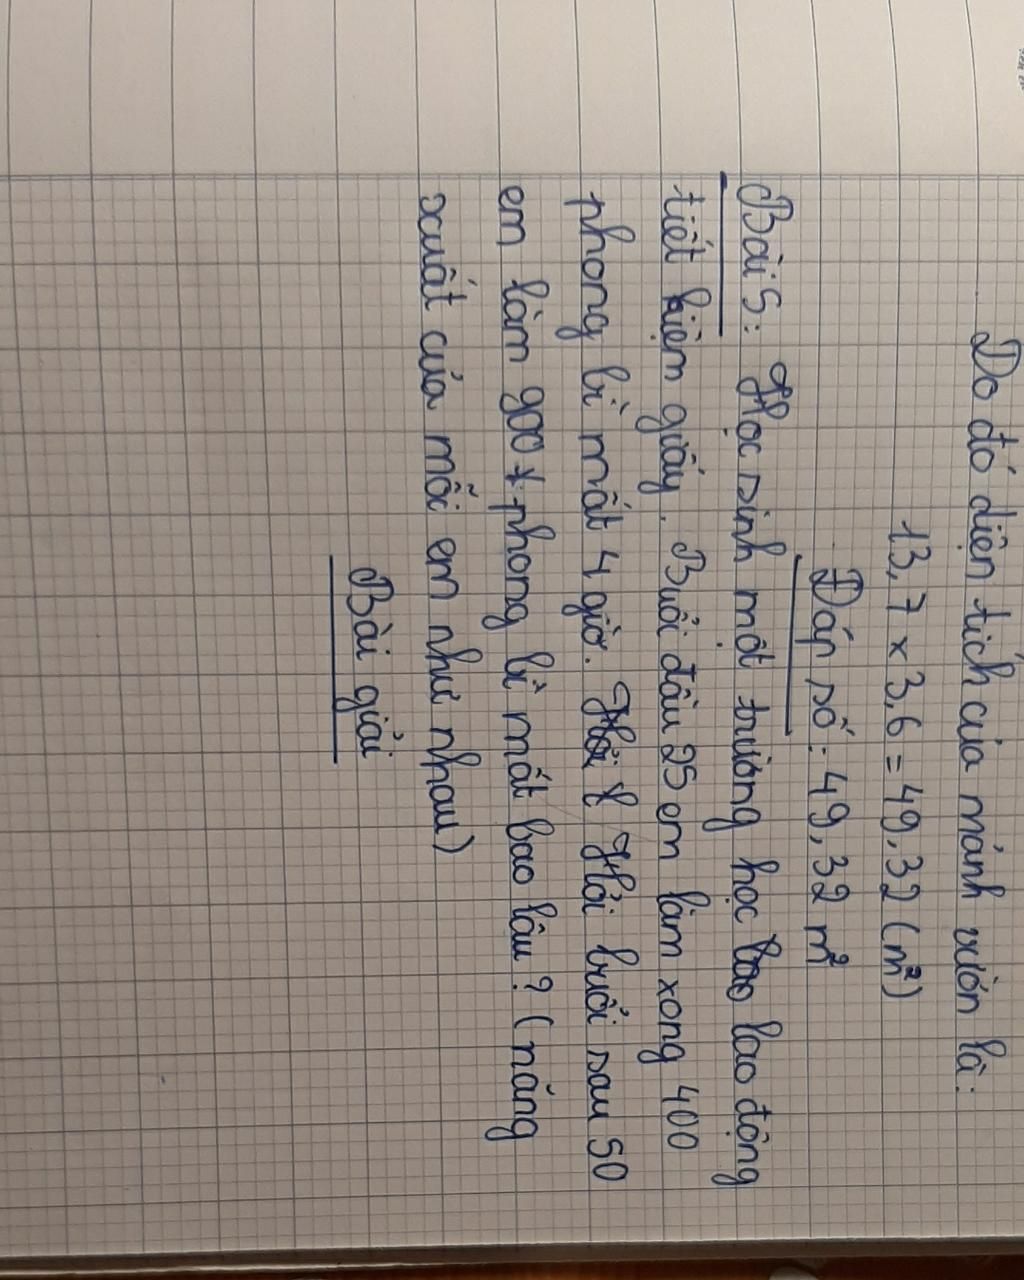 Do đó diện tích của mảnh vườn là:
13,7 x 3,6 = 49,32 (m²)
Đáp số: 49,32 m²
Bài 5: Học sinh một trường học lao động
tiết kiệm giấy. Buổi đầu 25 em làm xong 400
phong bì mất 4 giờ. Hỏi buổi sau 50
em làm 900 phong bì mất bao lâu? (năng
xuất của mỗi em như nhau)
Bài giải